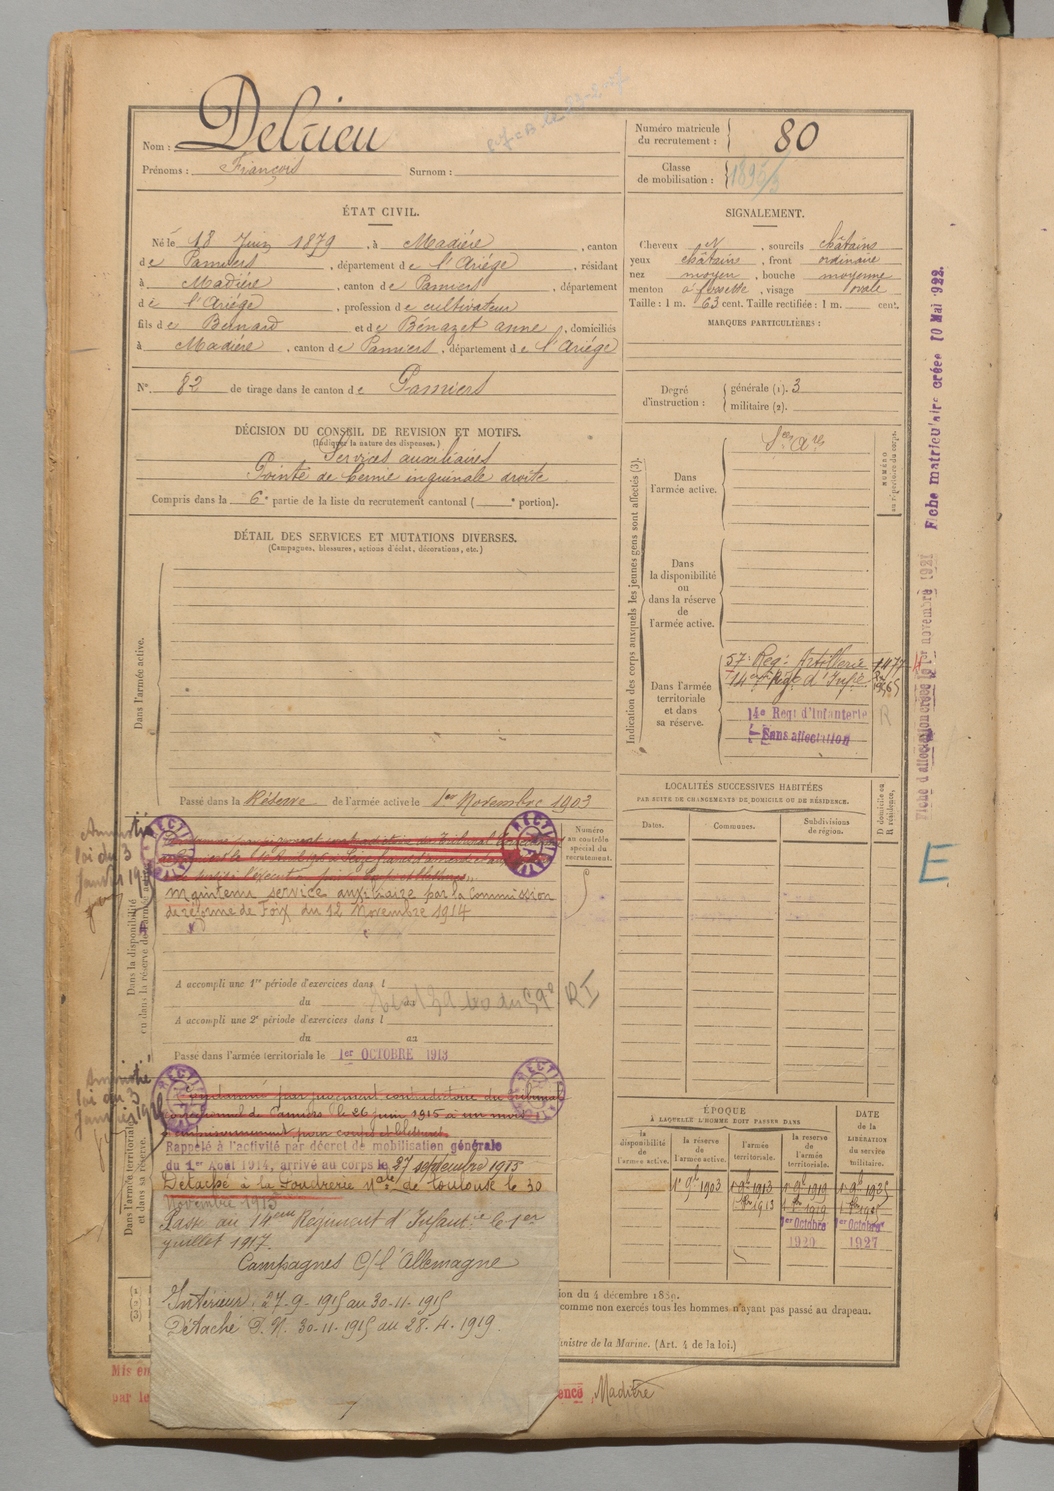 Nom : Delrieu
Prénoms : François Surnom :
Numéro matricule du recrutement : 80
Classe de mobilisation :
ÉTAT CIVIL.
Né le 18 Juin 1879, à Madière, canton
de Pamiers, département de l'Ariége, résidant
à Madiére, canton de Pamiers, département
de l'Ariége, profession de cultivateur
fils de Bernard et de Bénazet anne, domiciliés
à Madiére, canton de Pamiers, département de l'Ariége
N° 82 de tirage dans le canton de Pamiers
SIGNALEMENT.
Cheveux N, sourcils châtains
yeux châtains, front ordinaire
nez moyen, bouche moyenne
menton à fossette, visage ovale
Taille : 1 m. 63 cent. Taille rectifiée : 1 m. cent.
MARQUES PARTICULIÈRES :
Degré d'instruction : générale (1). 3
militaire (2).
DÉCISION DU CONSEIL DE REVISION ET MOTIFS.
(Indiquer la nature des dispenses.)
Services auxiliaires
Pointe de hernie inguinale droite
Compris dans la 6e partie de la liste du recrutement cantonal ( e portion).
DÉTAIL DES SERVICES ET MUTATIONS DIVERSES.
(Campagnes, blessures, actions d'éclat, décorations, etc.)
Dans l'armée active.
Passé dans la Réserve de l'armée active le 1er Novembre 1903
Amnistié
loi du 3
Janvier
RECTIFICATIF
maintenu service auxiliaire par la Commission
de réforme de Foix du 12 Novembre 1914
Dans la disponibilité ou dans la réserve de l'armée active
Numéro au contrôle spécial du recrutement.
A accompli une 1re période d'exercices dans l
du au
RI
A accompli une 2e période d'exercices dans l
du au
Passé dans l'armée territoriale le 1er OCTOBRE 1913
Amnistié
loi du 3
Janvier
RECTIFICATIF
Condamné par jugement contradictoire du tribunal
correctionnel de Pamiers le 26 juin 1915 à un mois
d'emprisonnement pour coups et blessures
Rappelé à l'activité par décret de mobilisation générale
du 1er Août 1914, arrivé au corps le 27 septembre 1915
Détaché à la Poudrerie Nale de Toulouse le 30
Novembre 1915
Passé au 14eme Régiment d'Infantie le 1er
juillet 1917.
Campagnes C/ l'Allemagne
Intérieur : 27-9-1915 au 30-11-1915
Détaché P.N. 30-11-1915 au 28.4.1919.
Dans l'armée territoriale et dans sa réserve.
Indication des corps auxquels les jeunes gens sont affectés (3).
NUMÉRO au répertoire du corps.
Dans l'armée active.
Dans la disponibilité ou dans la réserve de l'armée active.
Dans l'armée territoriale et dans sa réserve.
57e Regt Artillerie
14e Regt d'Infanterie
Sans affectation
R
LOCALITÉS SUCCESSIVES HABITÉES
PAR SUITE DE CHANGEMENTS DE DOMICILE OU DE RÉSIDENCE.
Dates. Communes. Subdivisions de région.
D domicile ou R résidence.
ÉPOQUE
À LAQUELLE L'HOMME DOIT PASSER DANS
DATE de la LIBÉRATION du service militaire.
la disponibilité de l'armée active. la réserve de l'armée active. l'armée territoriale. la reserve de l'armée territoriale.
1er 9bre 1903 1er 9bre 1913 1er 9bre 1919 1er 9bre 1925
1er Octobre 1920 1er Octobre 1927
ion du 4 décembre 1889.
comme non exercés tous les hommes n'ayant pas passé au drapeau.
inistre de la Marine. (Art. 4 de la loi.)
Mis en
par le
ence Madière
Fiche matriculaire créée 10 Mai 1922.
Fiche d'affectation créée le 1er novembre 1921
E